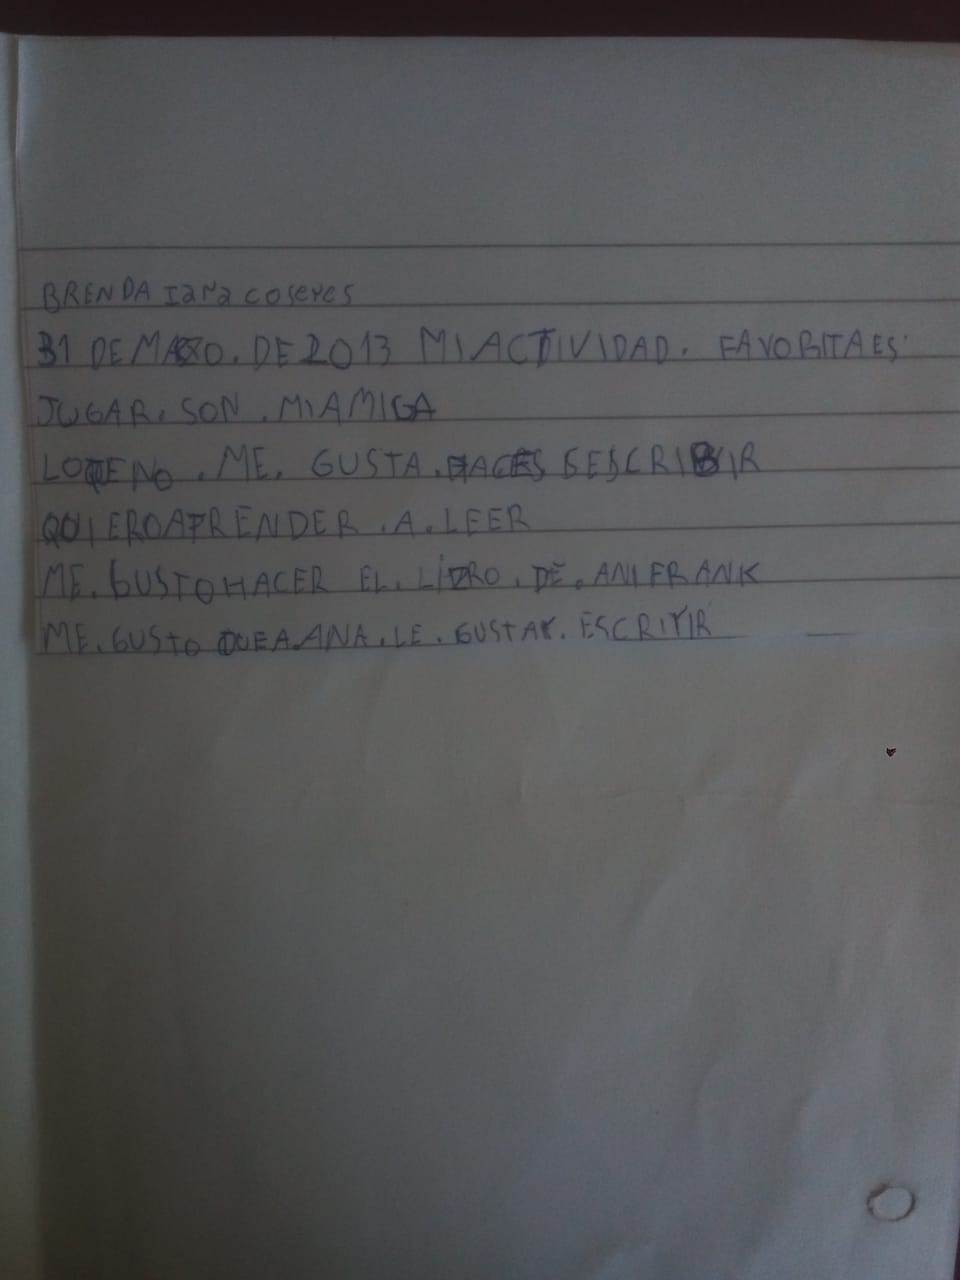 BRENDA Iara coseres
31 DE MAZO. DE 2013 MI ACTIVIDAD. FAVORITA ES
JUGAR. SON. MI AMIGA
LO QE NO. ME. GUSTA. HACES SESCRIBIR
QUIERO APRENDER. A. LEER
ME. GUSTO HACER EL. LIBRO. DE. ANI FRANK
ME. GUSTO QUE A. ANA. LE. GUSTAR.